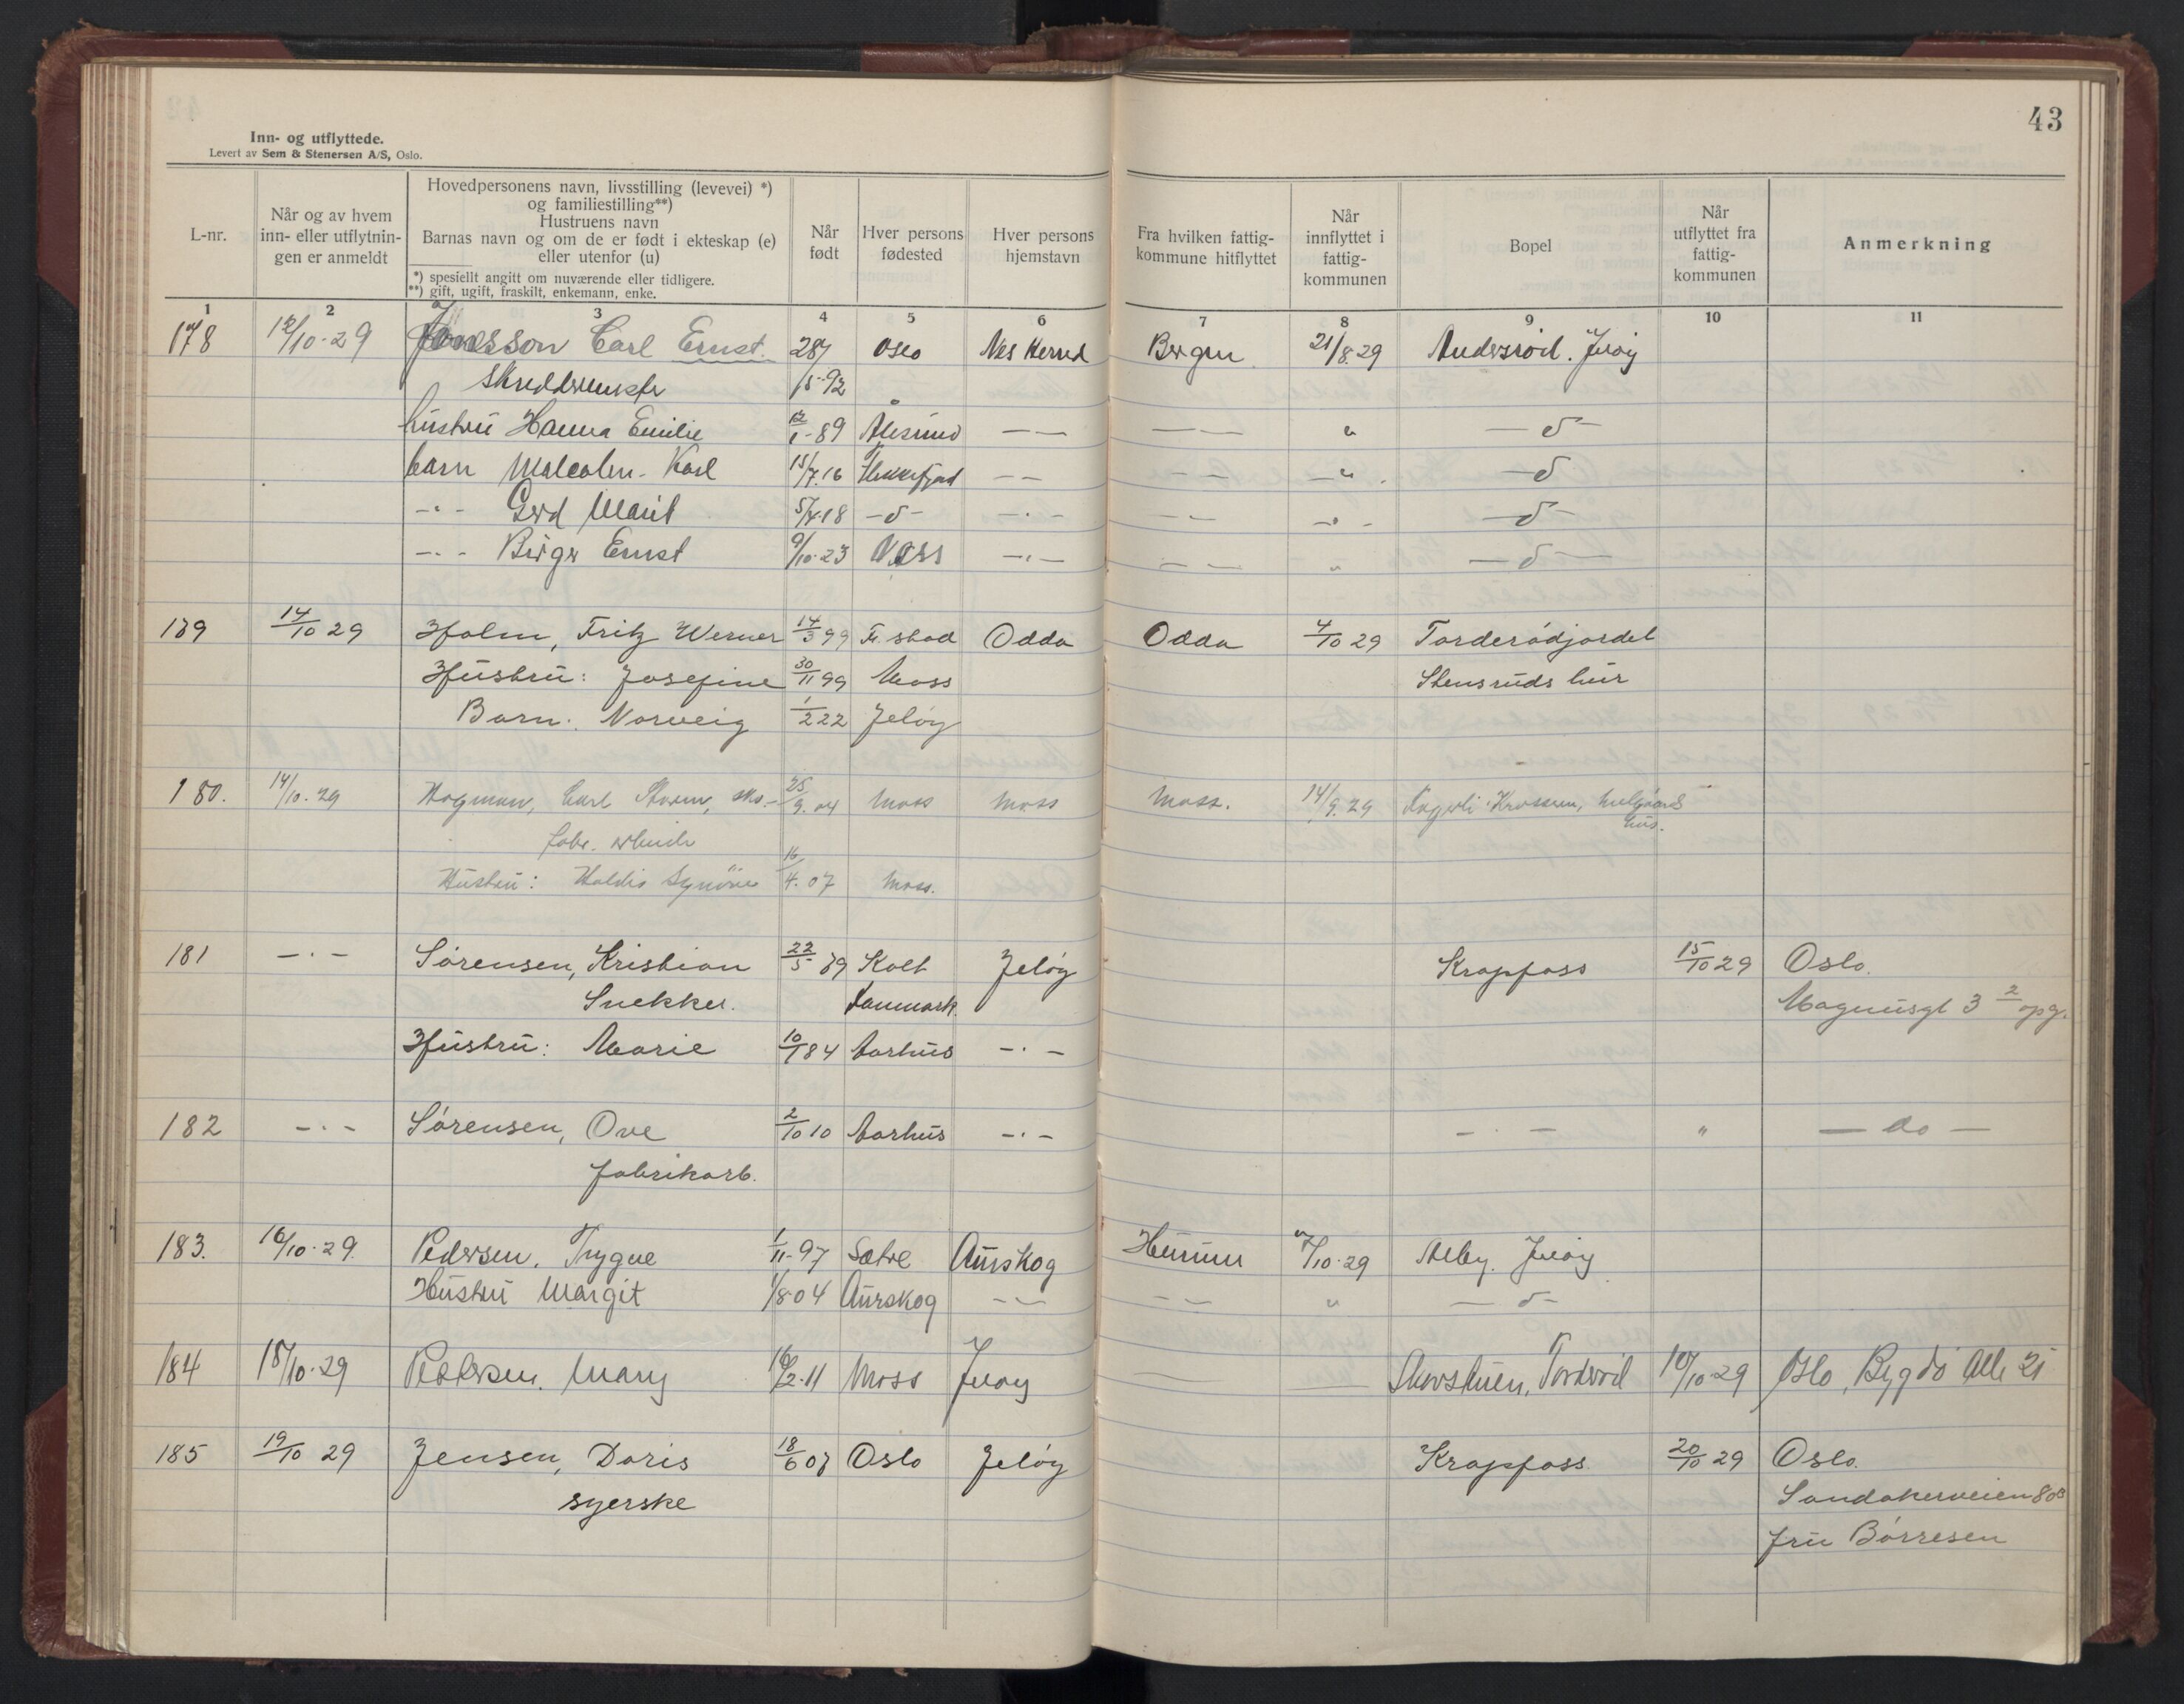 43
Inn- og utflyttede.
Levert av Sem & Stenersen A/S, Oslo.
L-nr.
Når og av hvem inn- eller utflytnin-gen er anmeldt
Hovedpersonens navn, livsstilling (levevei) *)
og familiestilling**)
Hustruens navn
Barnas navn og om de er født i ekteskap (e)
eller utenfor (u)
*) spesiellt angitt om nuværende eller tidligere.
**) gift, ugift, fraskilt, enkemann, enke.
Når født
Hver persons fødested
Hver persons hjemstavn
Fra hvilken fattig-kommune hitflyttet
Når innflyttet i fattig-kommunen
Bopel
Når utflyttet fra fattig-kommunen
Anmerkning
1 2 3 4 5 6 7 8 9 10 11
178 12/10-29 Carl Ernst 28/ Oslo Nes Herred Bergen 21/8.29 Andersrød. Jeløy
/5-92
hustru Hanna Emilie 12/1-89 Ålesund — — — — " — d —
barn Malcolm Karl 15/7.16 Flekkefjord — — — — — " . — d
— " — Gerd Marit 5/4.18 — d — — . — — . — — " — — d —
— . - Birger Ernst 9/10-23 Voss — . — — — " — d —
179 14/10 29 Holm, Fritz Werner 14/3 99 Fr. stad Odda Odda 4/10 29 Torderødjordet
Hustru: Josefine 30/11 99 Moss Stensruds hus
Barn: Norveig 1/2 22 Jeløy
180. 14/10. 29 Hagman, Carl sko- 25/9.04 Moss Moss Moss. 14/9.29
fabr. arbeider hus.
Hustru: Haldis Synöve 16/4.07 Moss.
181 — . — Sørensen, Kristian 22/5 79 Kolt Jeløy Krapfoss 15/10 29 Oslo.
Snekker. Danmark. Magnusgt 3 2 opg.
Hustru: Marie 10/1 84 Aarhus — . —
182 — . — Sørensen, Ove 2/10 10 Aarhus — . — — . — " — do —
fabrikarb.
183. 16/10-29. Pedersen, Trygve 1/11-97 Sætre Aurskog Hurum /10-29 Alby. Jeløy
Hustru Margit 1/8-04 Aurskog — — — — " — d —
184 18/10-29 Pedersen, Mary 16/2-11 Moss Jeløy — — Torderød /10-29 Oslo, Bygdø Alle 21
185 19/10 29 Jensen, Doris 18/6 07 Oslo Jeløy Krapfoss 20/10 29 Oslo.
syerske Sandakerveien 80B
Fru Børresen